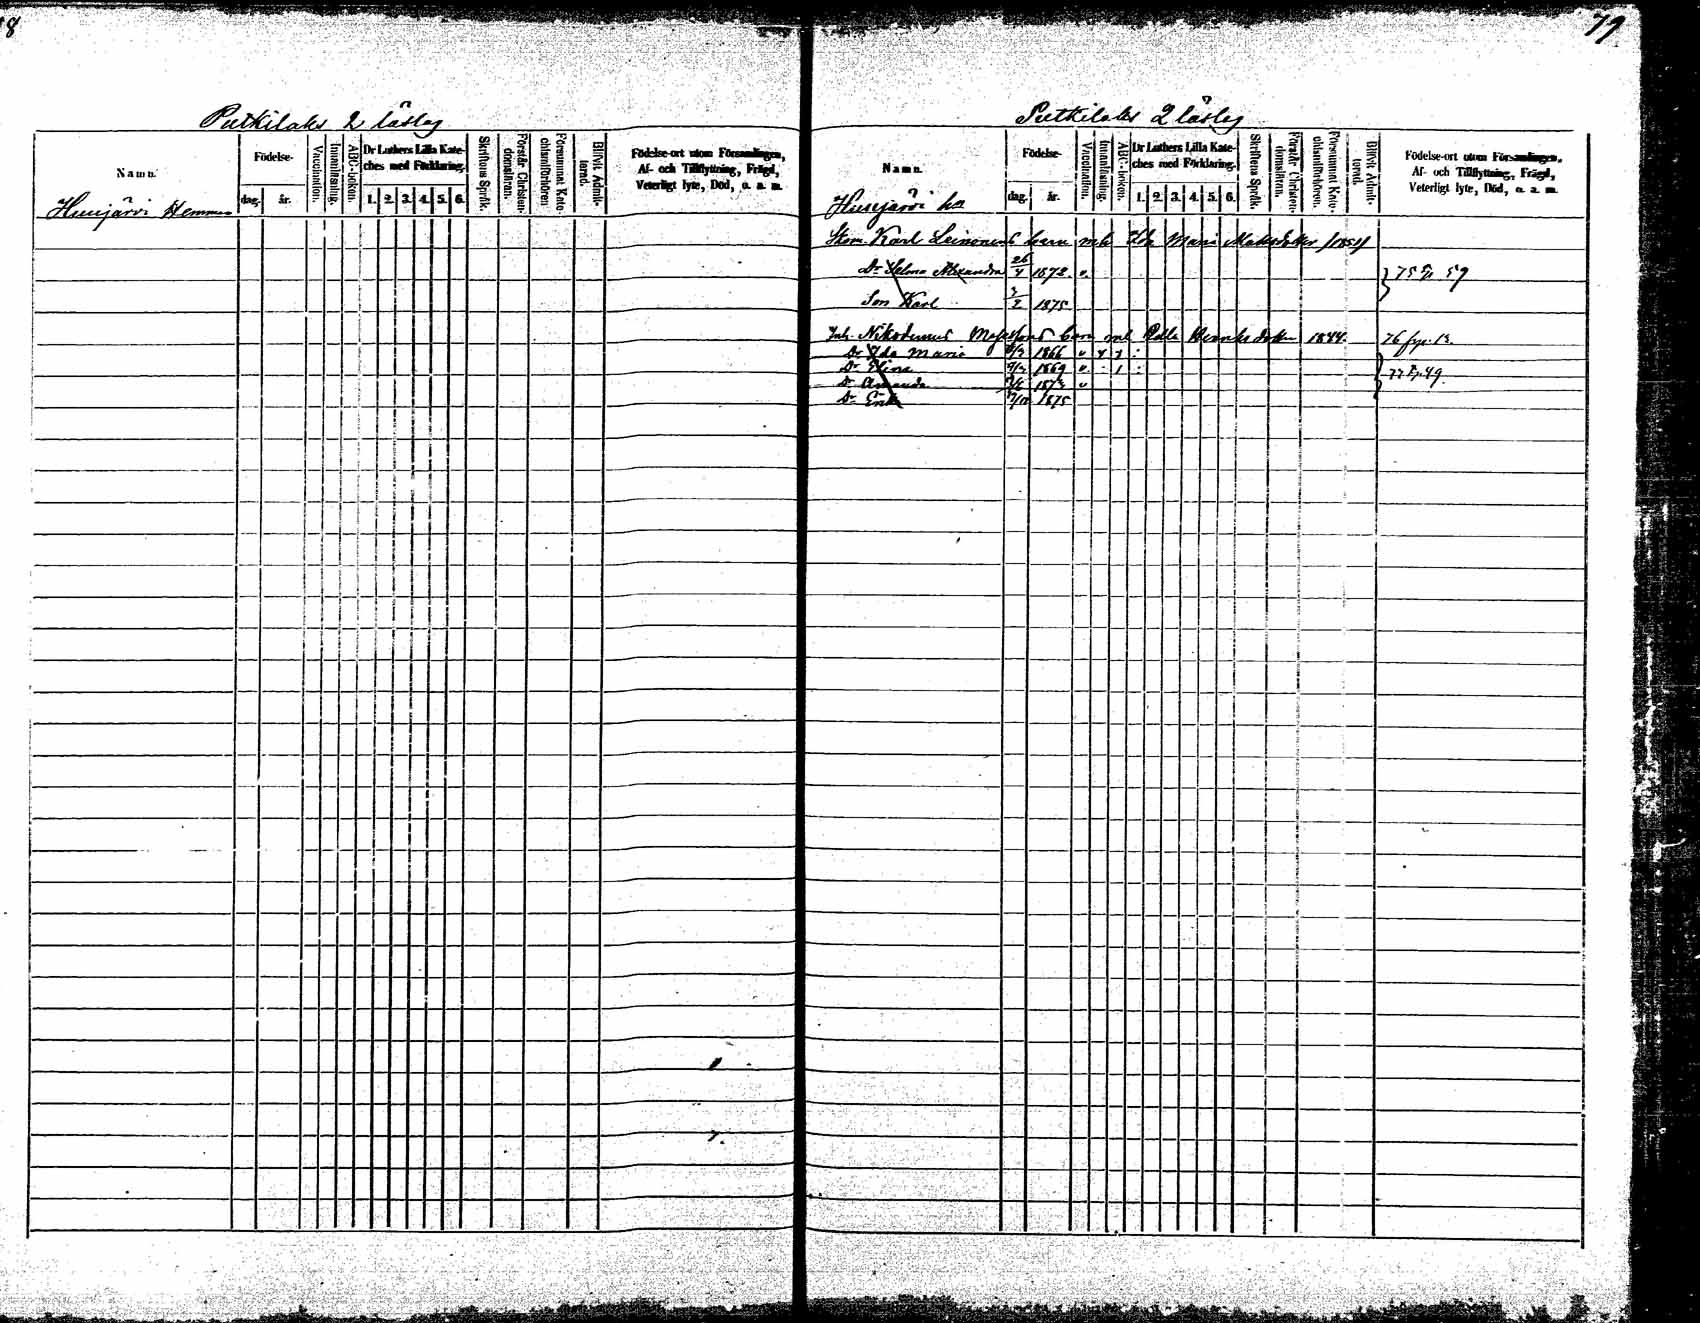 8
Putkilaks 2 läslag
Namn.
Födelse-
dag. år.
Vaccination.
Innanläsning.
ABC-boken.
Dr Luthers Lilla Kate-
ches med Förklaring.
1. 2. 3. 4. 5. 6.
Skriftens Språk.
Förstår Christen-
domsläran.
Försummat Kate-
chismiförhören
Blifvit Admit-
terad.
Födelse-ort utom Församlingen,
Af- och Tillflyttning, Frägd,
Veterligt lyte, Död, o. s. m.
Husujärvi Hemman
79
Putkilaks 2 läslag
Namn.
Födelse-
dag. år.
Vaccination.
Innanläsning.
ABC-boken.
Dr Luthers Lilla Kate-
ches med Förklaring.
1. 2. 3. 4. 5. 6.
Skriftens Språk.
Förstår Christen-
domsläran.
Försummat Kate-
chismiförhören.
Blifvit Admit-
terad.
Födelse-ort utom Församlingen,
Af- och Tillflyttning, Frägd,
Veterligt lyte, Död, o. s. m.
Husujärvi
Karl Leinonens barn Ida Maria Matsdotter /1851/
Dr Selma Alexandra 26/4 1872 v. 75 59
Son Karl 3/2 1875
Inh. Nikodemus barn Henriksdotter 1844. 76 13.
Dr Ida Maria 1866 v
Dr Elina 1869 v. 77 49.
Dr Amanda 1873 v
Dr 1875